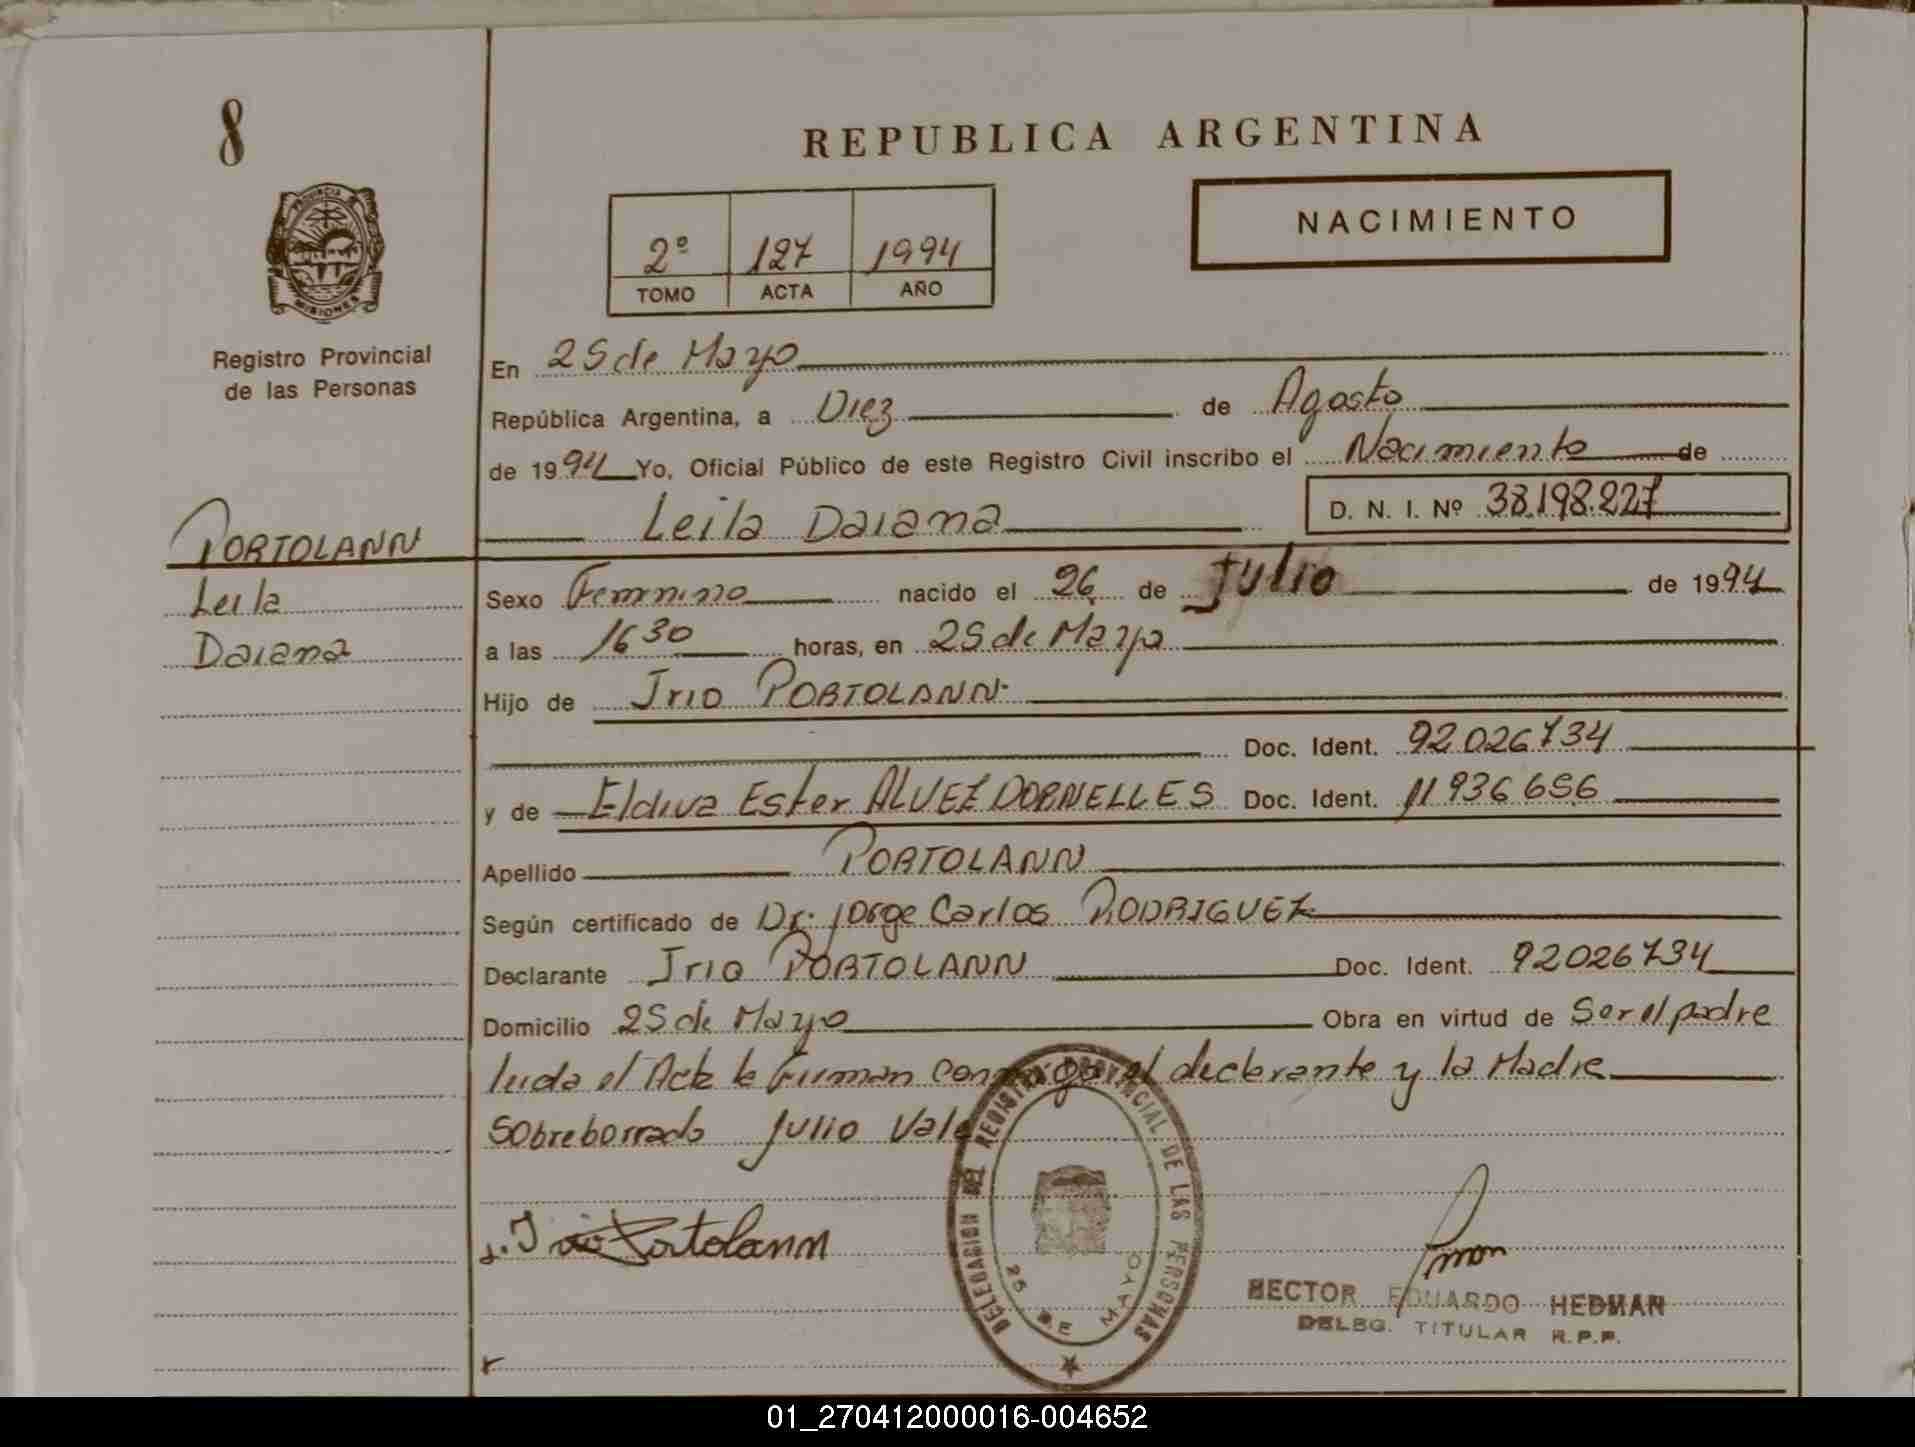 8
REPUBLICA ARGENTINA
PROVINCIA DE
MISIONES
Registro Provincial
de las Personas
2º 127 1994
TOMO ACTA AÑO
NACIMIENTO
En 25 de Mayo
República Argentina, a Diez de Agosto
de 1994 Yo, Oficial Público de este Registro Civil inscribo el Nacimiento de
Leila Daiana D. N. I. Nº 38.198.227
PORTOLANN
Leila
Daiana
Sexo Femnino nacido el 26 de Julio de 1994
a las 16 30 horas, en 25 de Mayo
Hijo de Irio PORTOLANN
Doc. Ident. 92026734
y de Eldiva Ester ALVEZ DORNELLES Doc. Ident. 11936656
Apellido PORTOLANN
Según certificado de Dr. Jorge Carlos RODRIGUEZ
Declarante Irio PORTOLANN Doc. Ident. 92026734
Domicilio 25 de Mayo Obra en virtud de Ser el padre
leida el Acta la firman conmigo el declarante y la Madre
Sobreborrado Julio Vale
Irio Portolann
DELEGACION DEL REGISTRO PROVINCIAL DE LAS PERSONAS
25 DE MAYO
HECTOR EDUARDO HEDMAN
DELEG. TITULAR R.P.P.
01_270412000016-004652